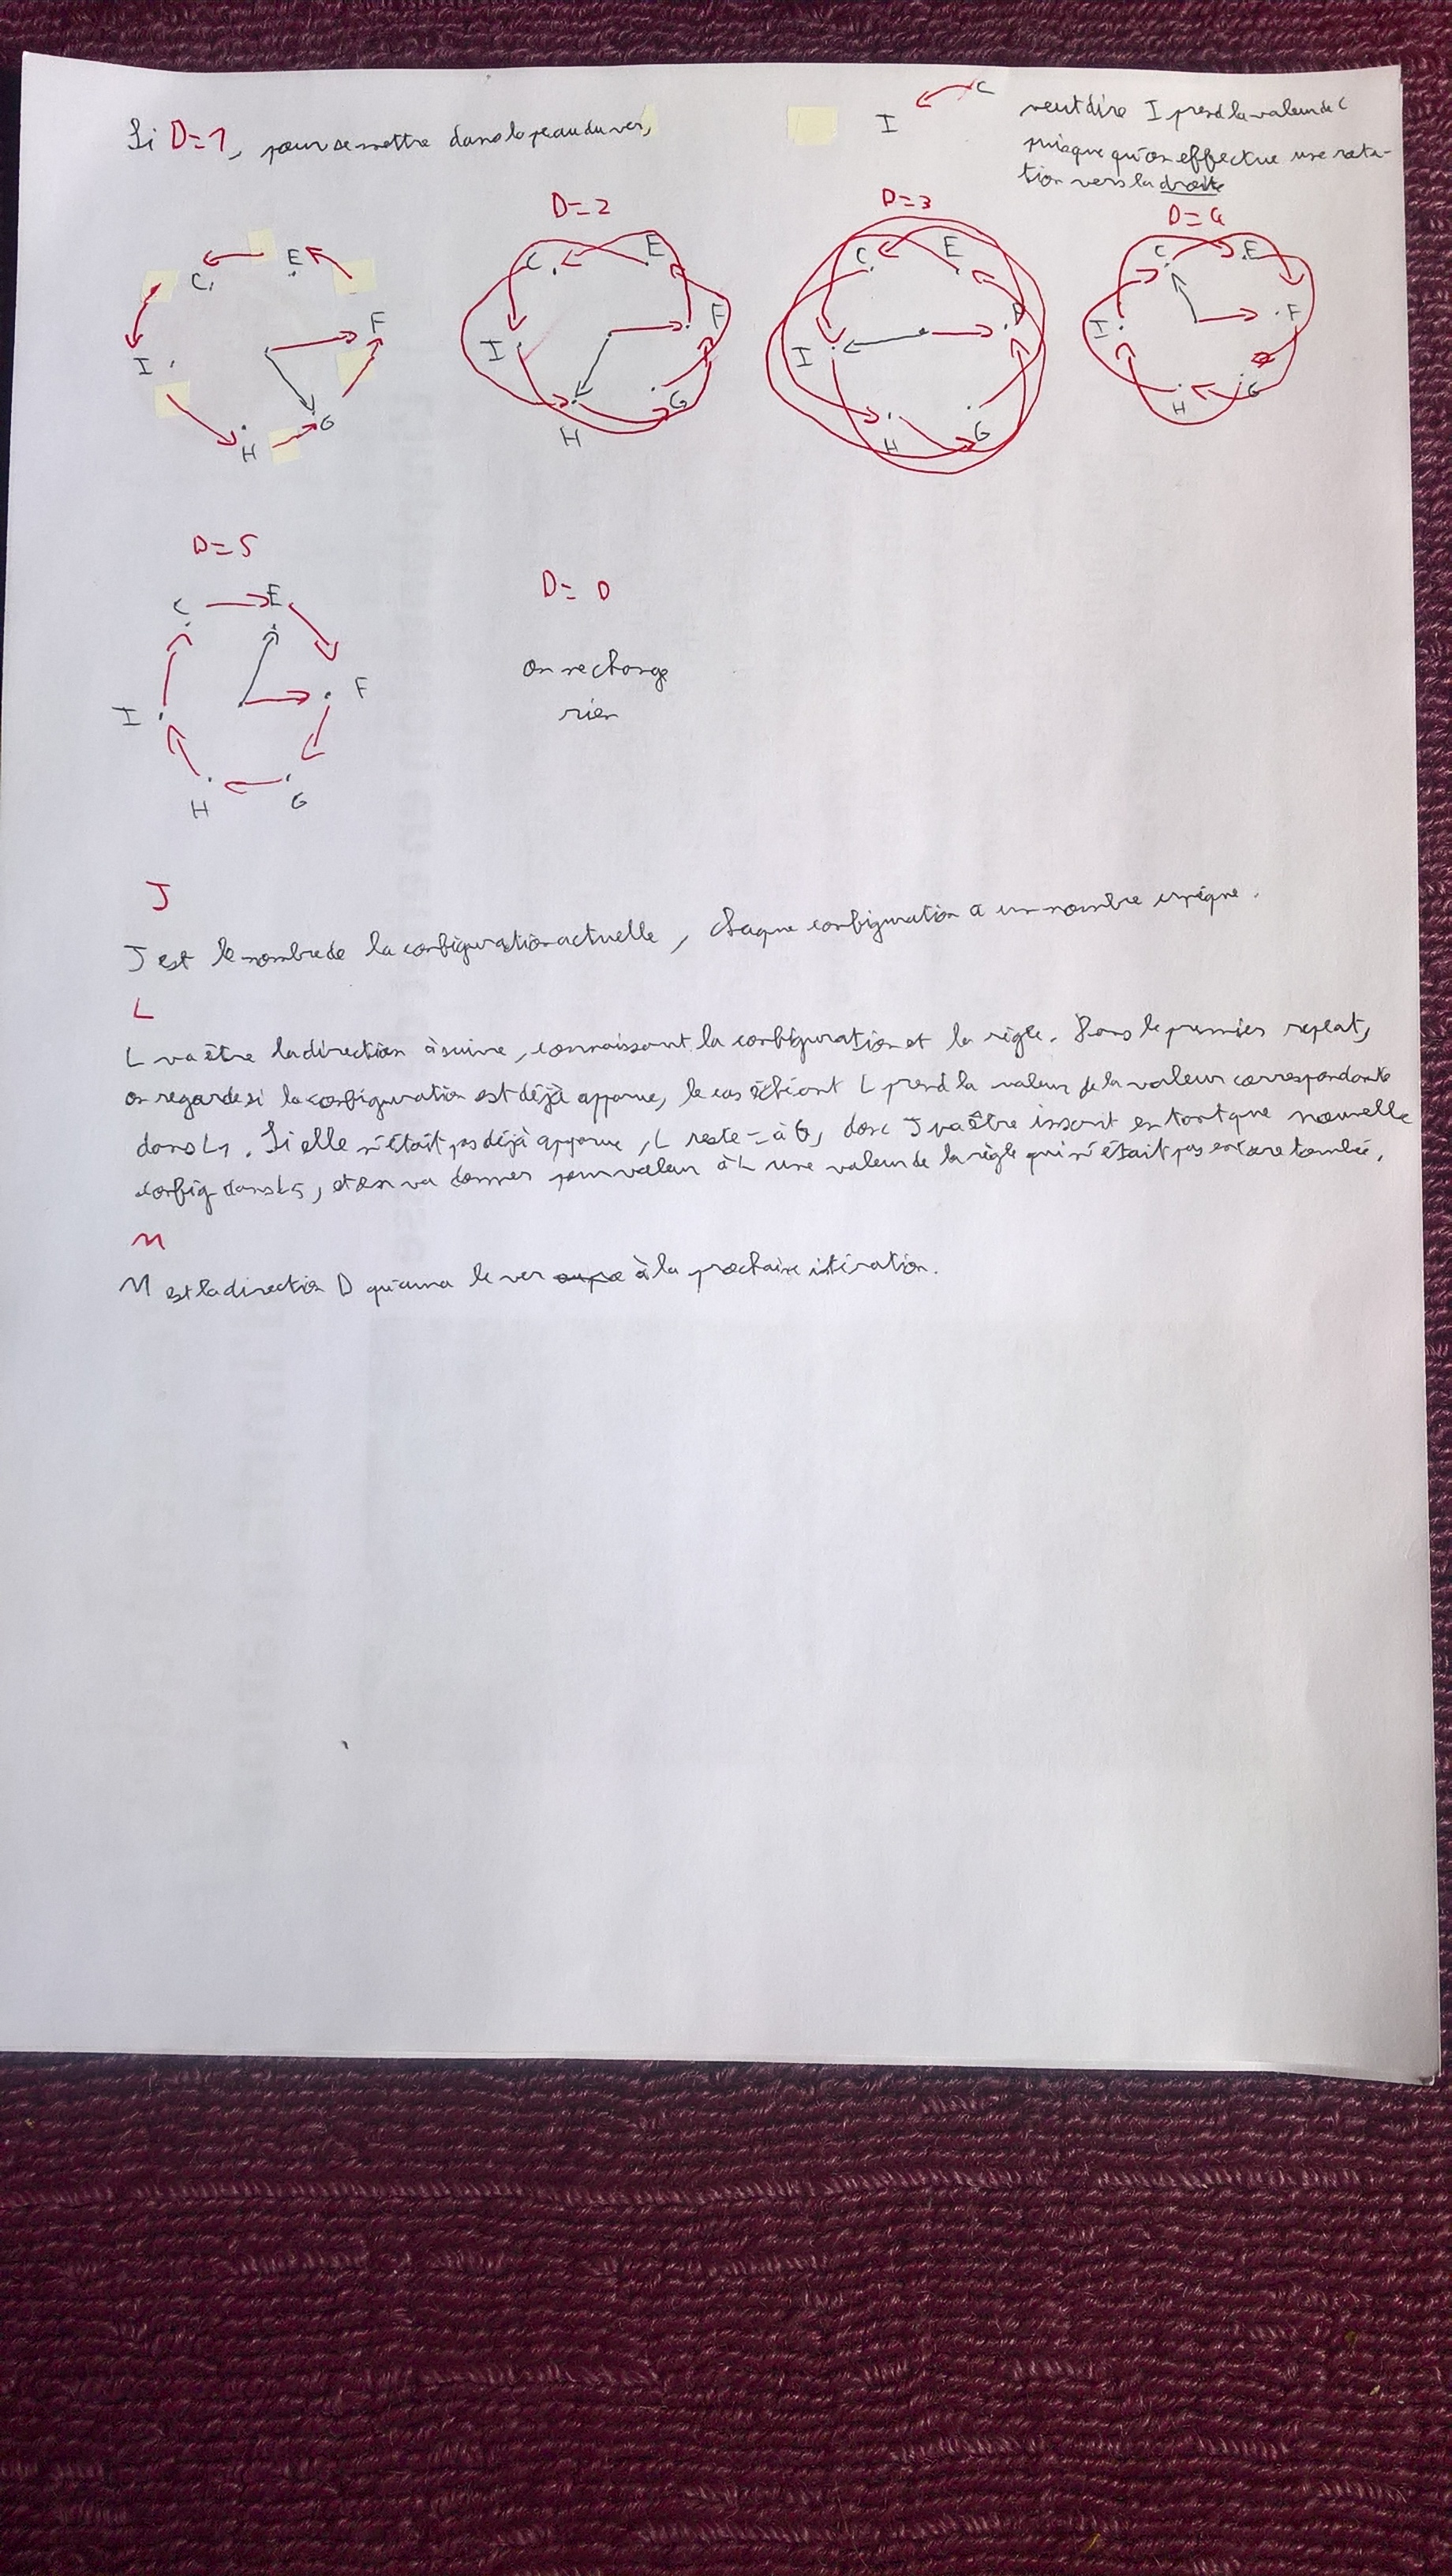 Si D=1, pour se mettre dans la peau du ver,
I C
veut dire I prend la valeur de C
puisque qu'on effectue une rota-
tion vers la droite
C E F G H I
D=2
C E F G H I
D=3
C E F G H I
D=4
C E F G H I
D=5
C E F G H I
D=0
on ne change
rien
J
J est le nombre de la configuration actuelle, chaque configuration a un nombre unique.
L
L va être la direction à suivre, connaissant la configuration et la règle. Dans le premier repeat,
on regarde si la configuration est déjà apparue, le cas échéant L prend la valeur de la valeur correspondante
dans L1. Si elle n'était pas déjà apparue, L reste = à 6, donc J va être inscrit en tant que nouvelle
config dans L5, et on va donner pour valeur à L une valeur de la règle qui n'était pas encore tombée.
M
M est la direction D qu'aura le ver à la prochaine itération.